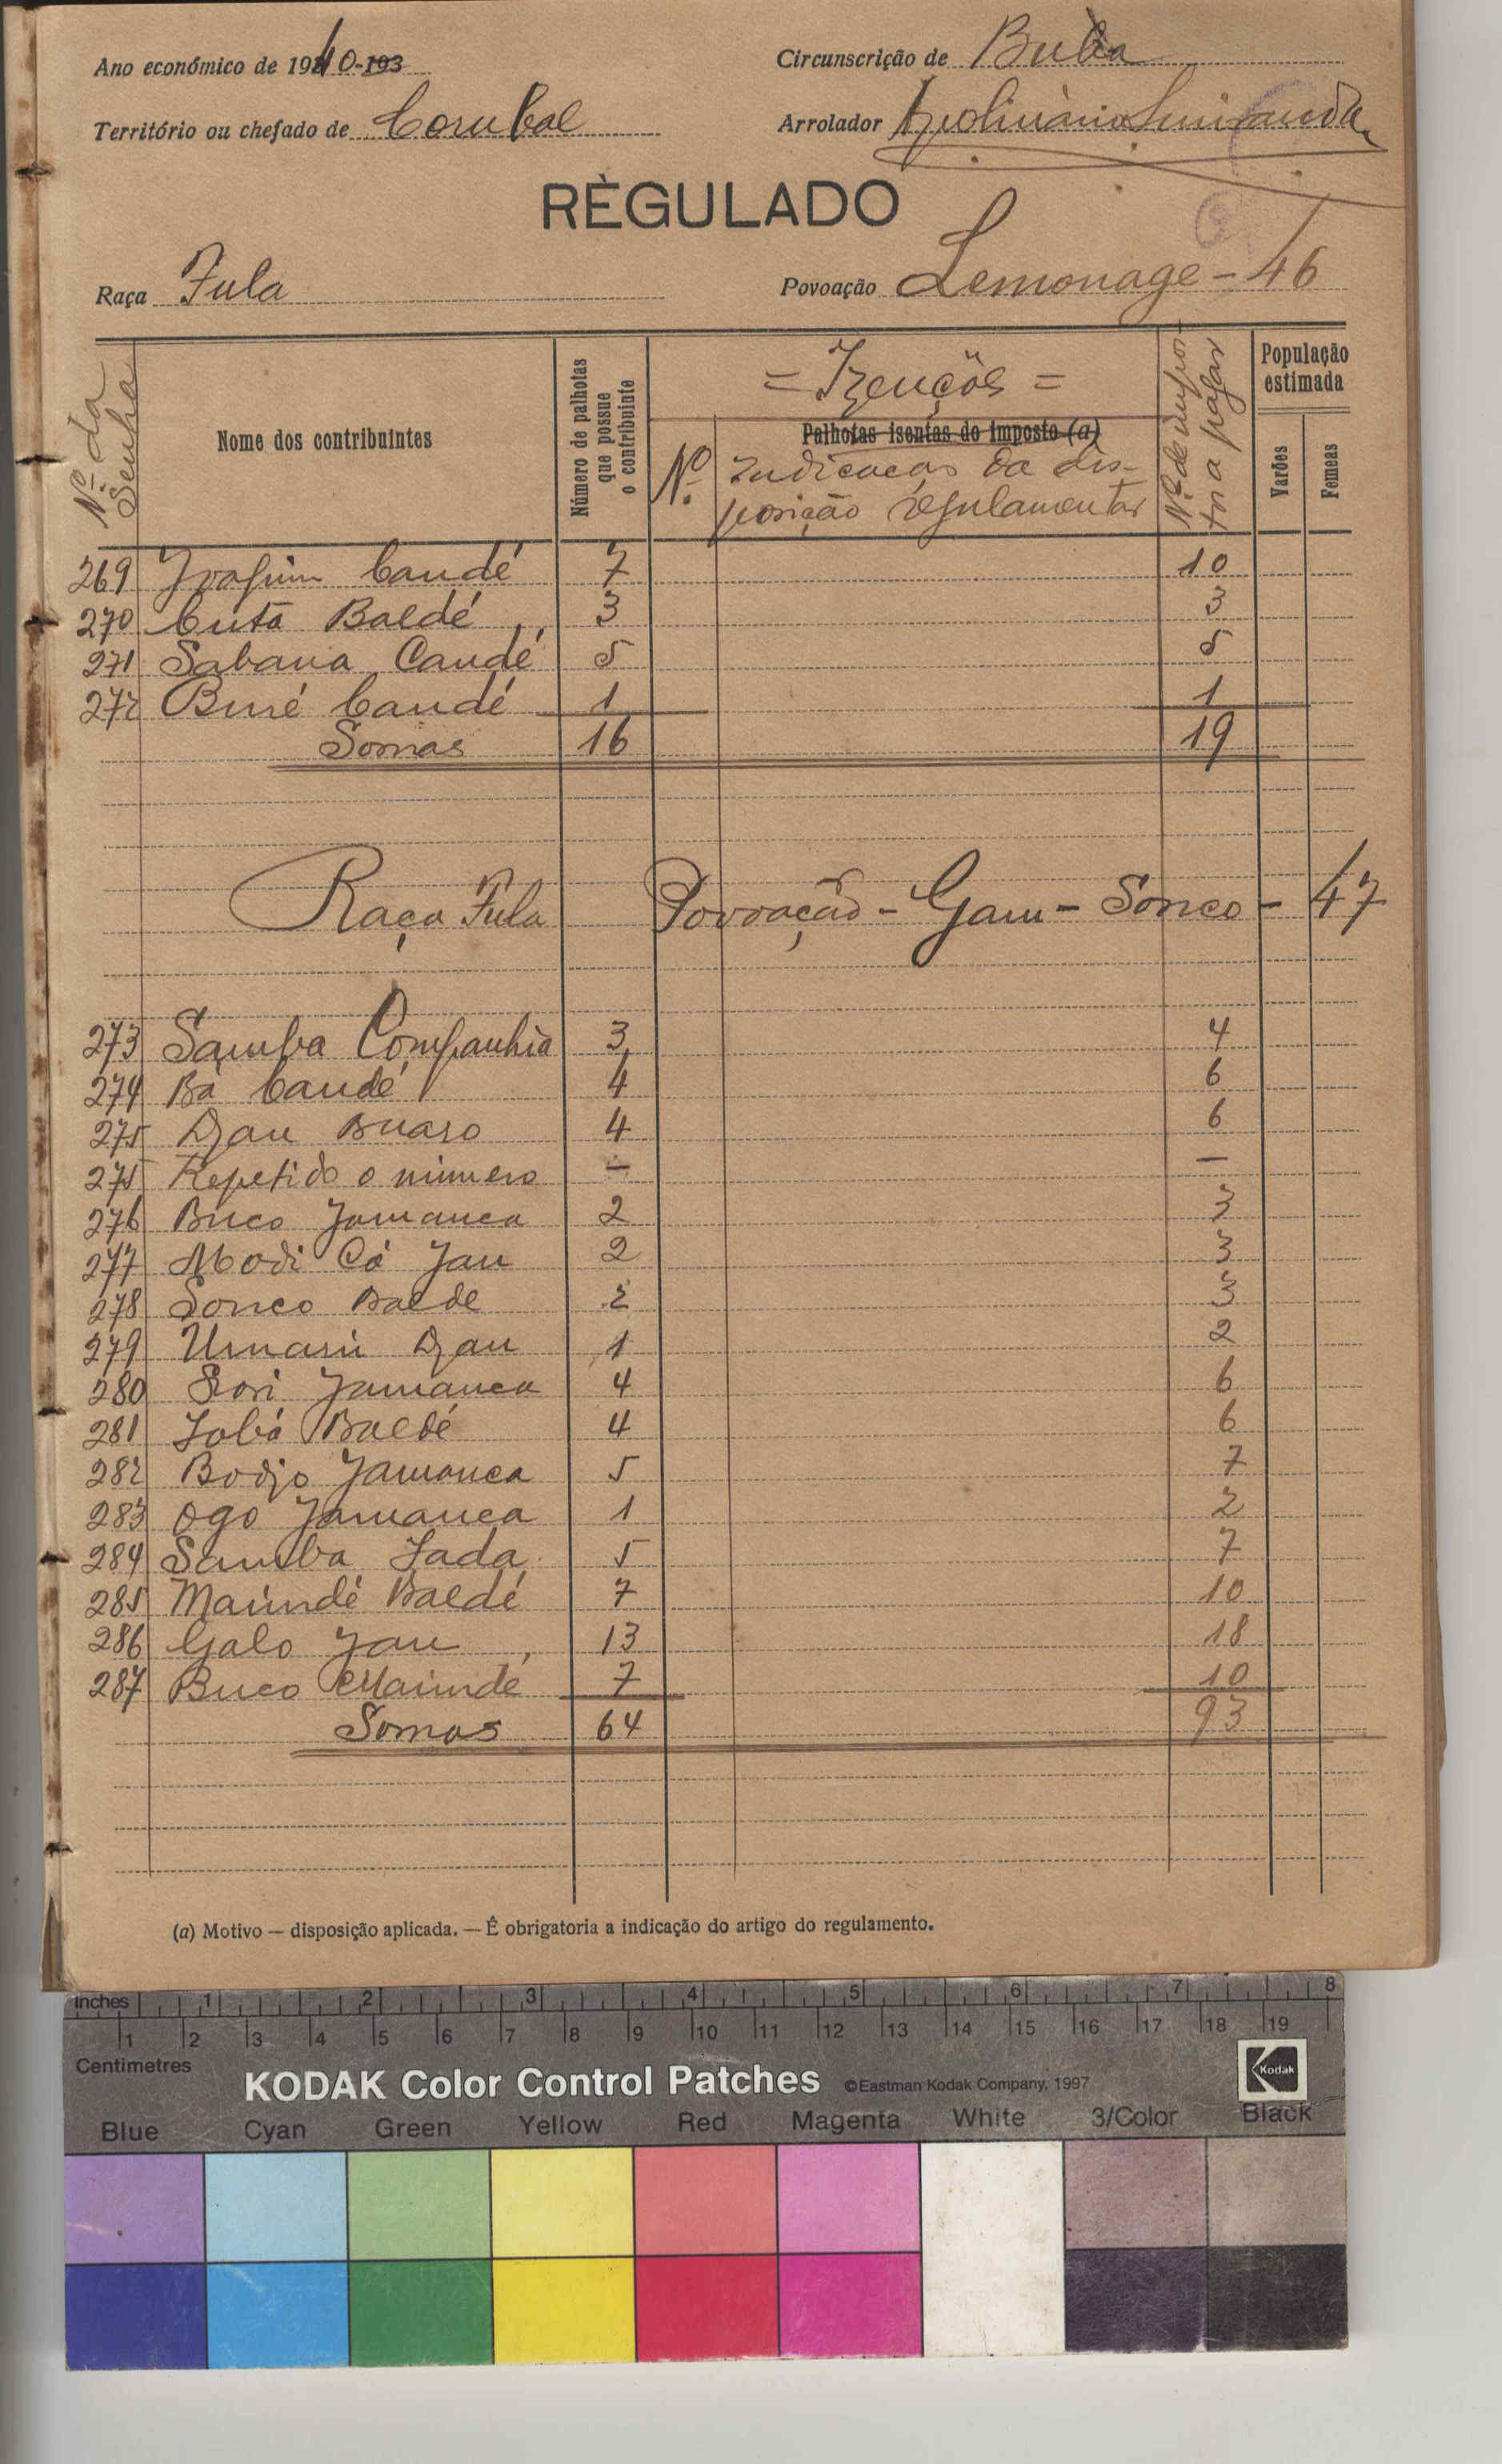 Ano económico de 1940-193 Circunscrição de Buba
Território ou chefado de Corubal Arrolador
RÈGULADO
Raça Fula Povoação Lemonage - 46
Nº da Senha Nome dos contribuintes Número de palhotas que possue o contribuinte = Izençõs = Nº de impostos a pagar População estimada
Palhotas isentas do imposto (a)
Nº indicacas da disposição regulamentar Varões Femeas
269 Joaquim Candé 7 10
270 Cuta Baldé 3 3
271 Sabana Candé 5 5
272 Buré Candé 1 1
Somas 16 19
Raça Fula Povoação - Gam - Sonco - 47
273 Samba Companhia 3 4
274 Bá Candé 4 6
275 Djau Buaro 4 6
275 Repetido o número - -
276 Buco Jamanca 2 3
277 Modi Cá Jau 2 3
278 Sonco Balde 2 3
279 Umarú Djau 1 2
280 Sori Jamanca 4 6
281 Jobá Baldé 4 6
282 Bodjo Jamanca 5 7
283 Ogo Jamanca 1 2
284 Samba Jada 5 7
285 Maúndé Baldé 7 10
286 Galo Jau 13 18
287 Buco Maúnde 7 10
Somas 64 93
(a) Motivo — disposição aplicada. — É obrigatoria a indicação do artigo do regulamento.
Inches 1 2 3 4 5 6 7 8
1 2 3 4 5 6 7 8 9 10 11 12 13 14 15 16 17 18 19
Centimetres
KODAK Color Control Patches ©Eastman Kodak Company, 1997 Kodak
Blue Cyan Green Yellow Red Magenta White 3/Color Black